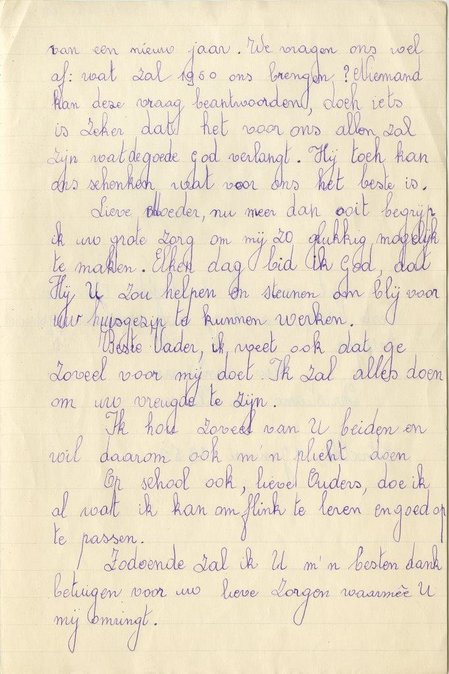 van een nieuw jaar. We vragen ons wel
af: wat zal 1960 ons brengen? Niemand
kan deze vraag beantwoorden, doch iets
is zeker dat het voor ons allen zal
zijn wat de goede God verlangt. Hij toch kan
ons schenken wat voor ons het beste is.
Lieve Moeder, nu meer dan ooit begrijp
ik uw grote zorg om mij zo gelukkig mogelijk
te maken. Elken dag bid ik God, dat
Hij U zou helpen en steunen om blij voor
uw huisgezin te kunnen werken.
Beste Vader, ik weet ook dat ge
zoveel voor mij doet. Ik zal alles doen
om uw vreugde te zijn.
Ik hou zoveel van U beiden en
wil daarom ook m'n plicht doen
Op school ook, lieve Ouders, doe ik
al wat ik kan om flink te leren en goed op
te passen.
Zodoende zal ik U m'n besten dank
betuigen voor uw lieve zorgen waarmeê U
mij omringt.